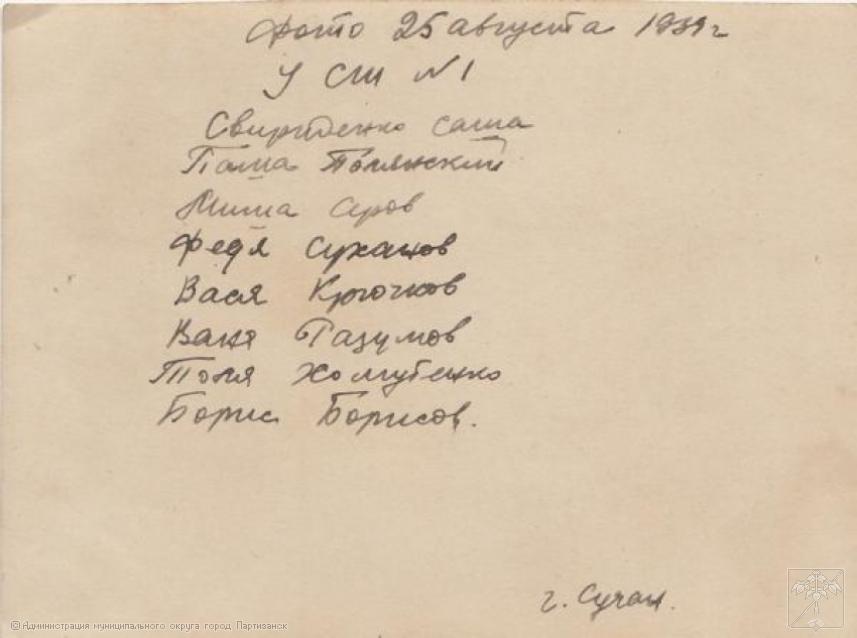 Фото 25 августа 1939 г
У СШ №1
Свириденко Саша
Паша Полянский
Миша Серов
Федя Суханов
Вася Крючков
Ваня Разумов
Толя Хомутенко
Борис Борисов.
г. Сучан.
© Администрация муниципального округа город Партизанск